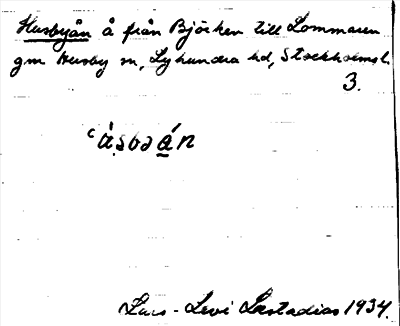 Husbyån å från Björken till Lommaren
gm Husby sn, Lyhundra hd, Stockholms l.
3.
Lars-Levi Læstadius 1934.